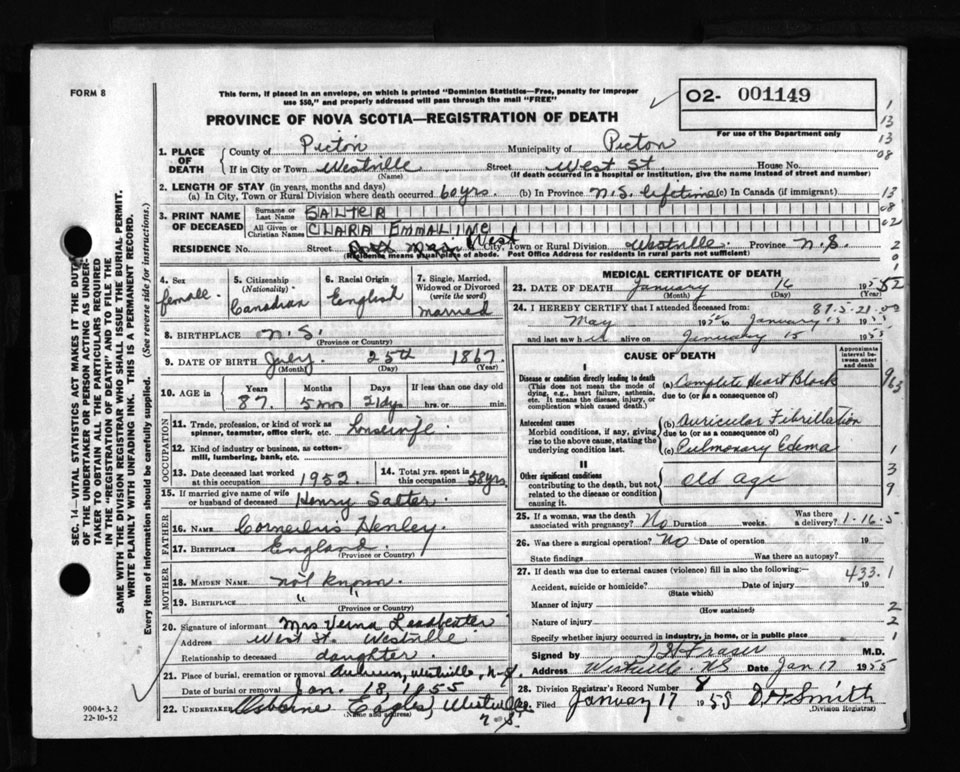 FORM 8
This form, if placed in an envelope, on which is printed "Dominion Statistics—Free, penalty for improper
use $50," and properly addressed will pass through the mail "FREE"
O2- 001149
For use of the Department only
PROVINCE OF NOVA SCOTIA—REGISTRATION OF DEATH
1. PLACE OF DEATH
County of Picton Municipality of Picton
If in City or Town Westville Street West St. House No.
(Name) (If death occurred in a hospital or institution, give the name instead of street and number)
2. LENGTH OF STAY (in years, months and days)
(a) In City, Town or Rural Division where death occurred 60 yrs. (b) In Province N.S. lifetime (c) In Canada (if immigrant)
3. PRINT NAME OF DECEASED
Surname or Last Name SALTER
All Given or Christian Names CLARA EMMALINE
RESIDENCE No. Street West City, Town or Rural Division Westville. Province N.S.
(Residence means usual place of abode. Post Office Address for residents in rural parts not sufficient)
4. Sex
female.
5. Citizenship
(Nationality)
Canadian
6. Racial Origin
England
7. Single, Married, Widowed or Divorced
(write the word)
married
8. BIRTHPLACE N.S.
(Province or Country)
9. DATE OF BIRTH July 25th 1867
(Month) (Day) (Year)
10. AGE in
Years Months Days If less than one day old
87. 5 mos 21 dys hrs. or min.
OCCUPATION
11. Trade, profession, or kind of work as
spinner, teamster, office clerk, etc. housewife
12. Kind of industry or business, as cotton-
mill, lumbering, bank, etc.
13. Date deceased last worked
at this occupation 1952
14. Total yrs. spent in
this occupation 58 yrs
15. If married give name of wife
or husband of deceased Henry Salter.
FATHER
16. NAME Cornelius Henley
17. BIRTHPLACE England.
(Province or Country)
MOTHER
18. MAIDEN NAME not known.
19. BIRTHPLACE " "
(Province or Country)
20. Signature of informant Mrs Verna Leadbeater
Address West St. Westville
Relationship to deceased daughter.
21. Place of burial, cremation or removal Auburn, Westville, N.S.
Date of burial or removal Jan. 18, 1955
22. UNDERTAKER Osborne Eagles, Westville
N.S.
(Name and address)
MEDICAL CERTIFICATE OF DEATH
23. DATE OF DEATH January 16 1955
(Month) (Day) (Year)
24. I HEREBY CERTIFY that I attended deceased from: 87-5-21-00
May 19 to January 15 1955
and last saw h alive on January 15 1955
CAUSE OF DEATH
Approximate interval between onset and death
I
Disease or condition directly leading to death
(This does not mean the mode of
dying, e.g., heart failure, asthenia,
etc. It means the disease, injury, or
complication which caused death.)
(a) Complete Heart Block
due to (or as a consequence of)
Antecedent causes
Morbid conditions, if any, giving
rise to the above cause, stating the
underlying condition last.
(b) Auricular Fibrillation
due to (or as a consequence of)
(c) Pulmonary Edema
II
Other significant conditions
contributing to the death, but not
related to the disease or condition
causing it.
old age
25. If a woman, was the death
associated with pregnancy? No Duration weeks. Was there a delivery? 1-16-5
26. Was there a surgical operation? No Date of operation 19
State findings Was there an autopsy?
27. If death was due to external causes (violence) fill in also the following:— 433.1
Accident, suicide or homicide? Date of injury 19
(State which)
Manner of injury
(How sustained)
Nature of injury
Specify whether injury occurred in industry, in home, or in public place
Signed by Fraser M.D.
Address Westville NS Date Jan 17 1955
28. Division Registrar's Record Number 8
29. Filed January 17 1955 D.H. Smith
(Division Registrar)
SEC. 14—VITAL STATISTICS ACT MAKES IT THE DUTY
OF THE UNDERTAKER OR PERSON ACTING AS UNDER-
TAKER TO OBTAIN ALL THE PARTICULARS REQUIRED
IN THE "REGISTRATION OF DEATH" AND TO FILE THE
SAME WITH THE DIVISION REGISTRAR WHO SHALL ISSUE THE BURIAL PERMIT.
WRITE PLAINLY WITH UNFADING INK. THIS IS A PERMANENT RECORD.
Every item of information should be carefully supplied. (See reverse side for instructions.)
9004-3.2
22-10-52
1
13
13
08
13
08
02
2
0
1
963
1
3
9
2
2
1